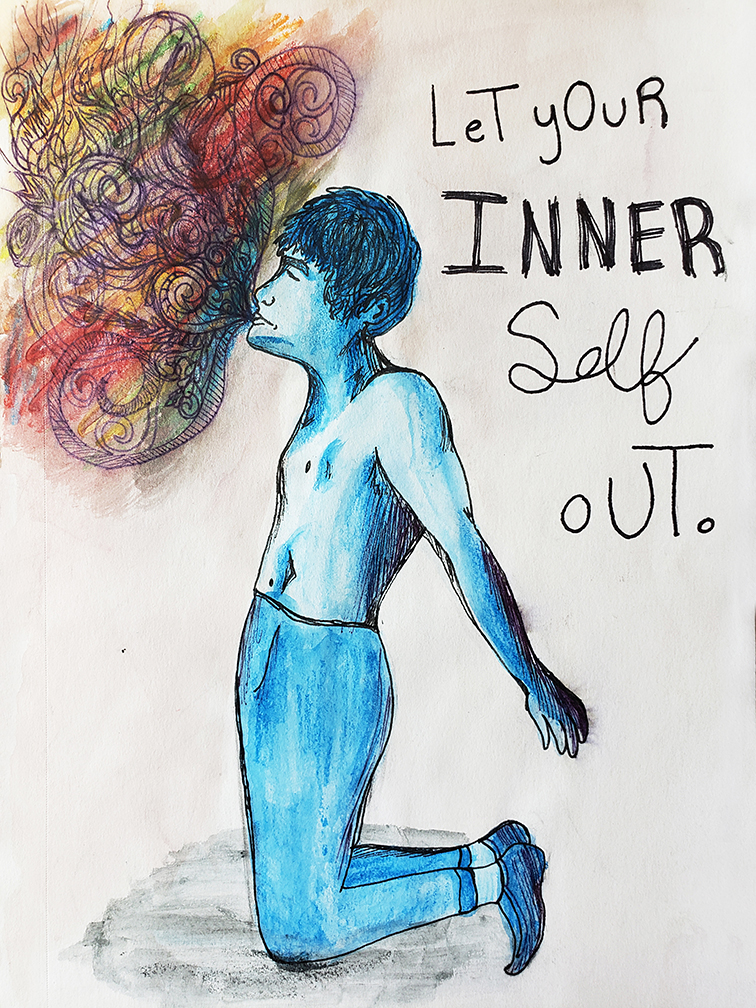 LeT yOUR
INNER
Self
OUT.